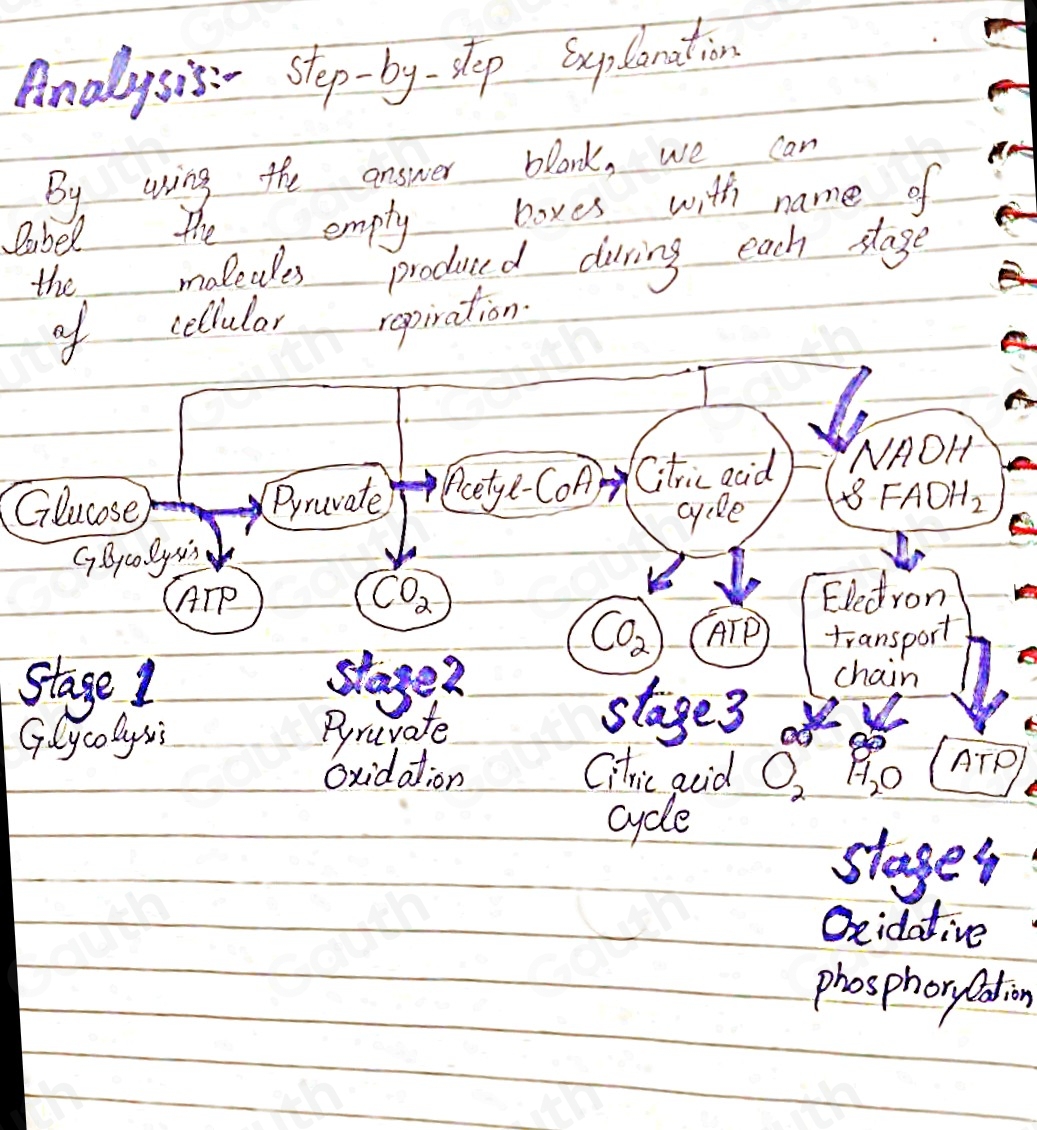 Analysis:- Step-by-step Explanation
By using the answer blank, we can
label the empty boxes with name of
the molecules produced during each stage
of cellular repiration.
Glucose
Pyruvate
Acetyl-CoA
Citric acid
cycle
NADH
& FADH₂
Glycolysis
ATP
CO₂
CO₂
ATP
Electron
transport
chain
O₂
H₂O
ATP
Stage 1
Glycolysis
Stage 2
Pyruvate
Oxidation
Stage 3
Citric acid
cycle
Stage 4
Oxidative
phosphorylation
Gauth